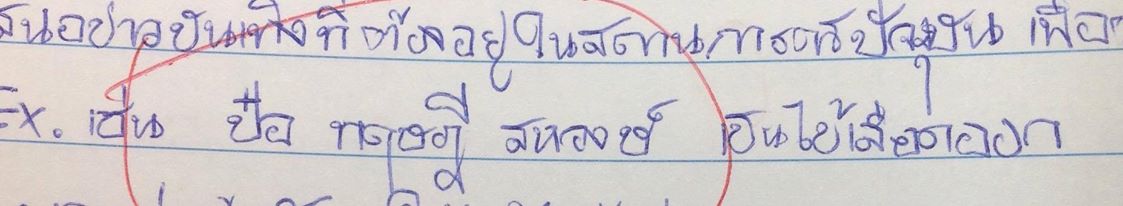 สนอข่าวบันเทิงที่ต้องอยู่ในสถานการณ์ปัจจุบัน เพื่อ
Ex. เช่น ปอ ทฤษฎี สหวงษ์ เป็นไข้เลือดออก